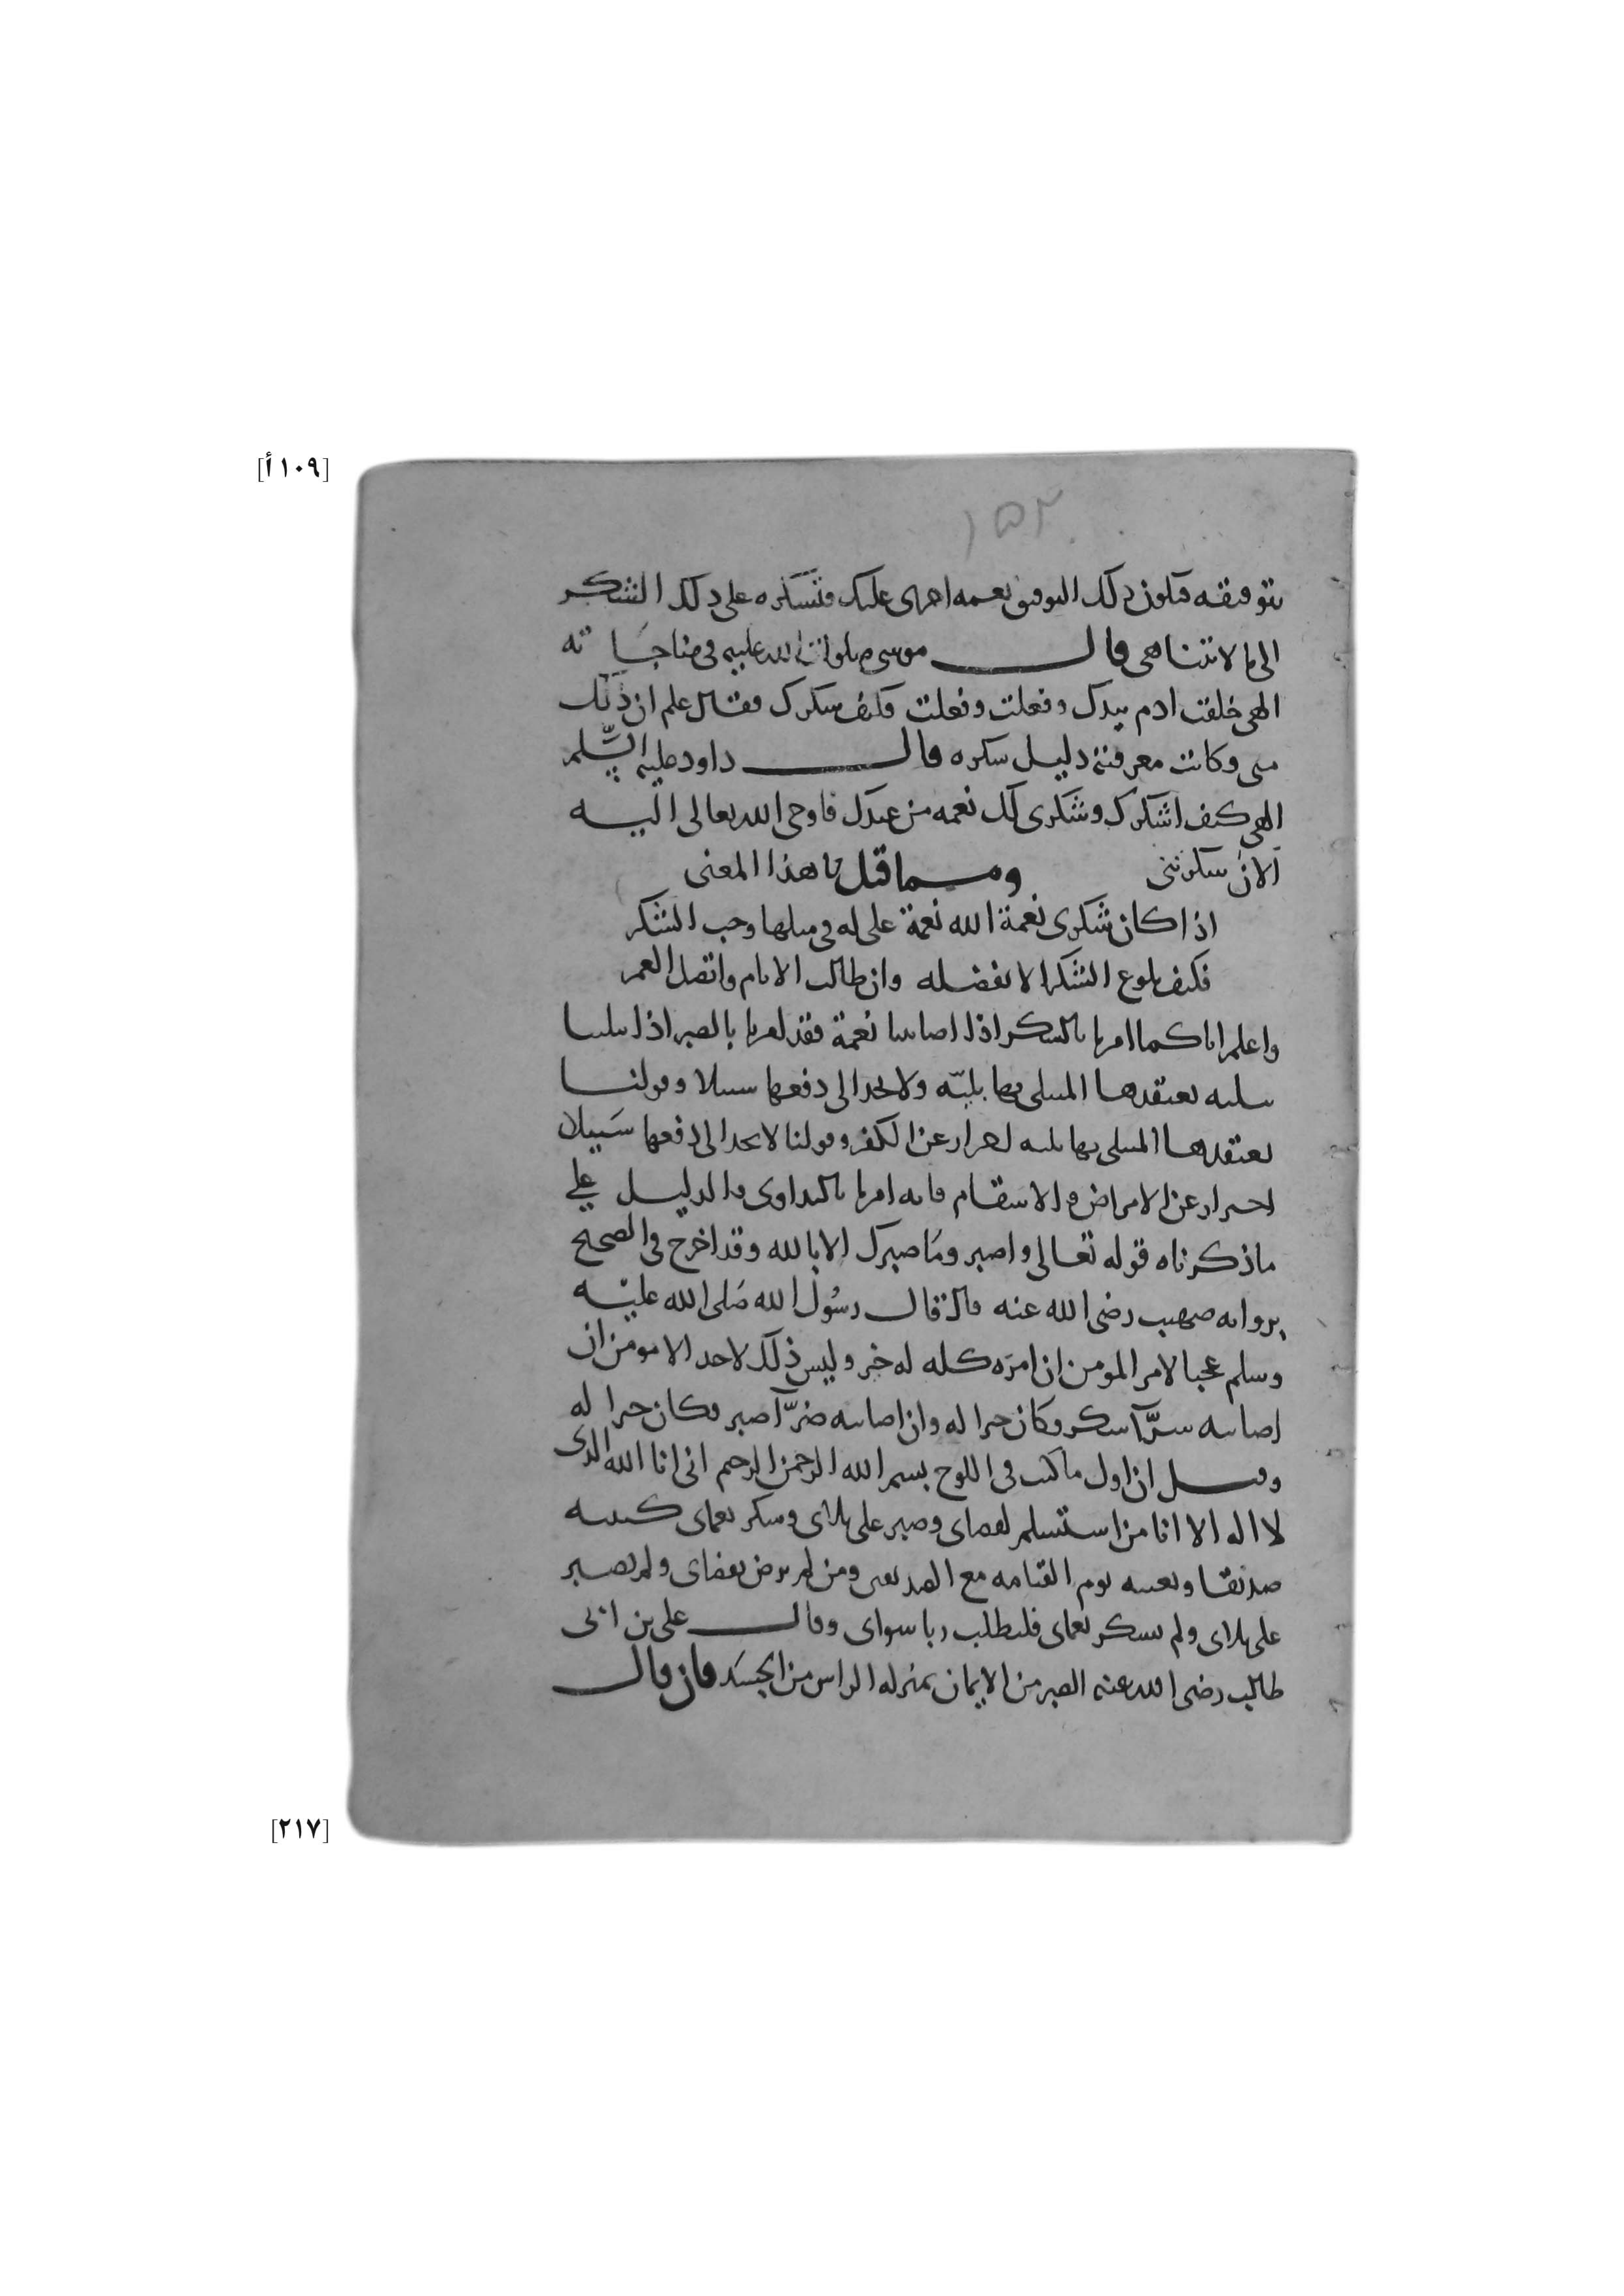 [١٠٩ أ]
١٥٢
بتوفيقه فتكون ذلك التوفيق نعمه اخرى عليك فتشكره على ذلك الشكر
الى ما لا يتناهى قال موسى صلوات الله عليه في مناجاته
الهي خلقت ادم بيدك وفعلت وفعلت فكيف شكرك فقال علم ان ذلك
مني وكانت معرفته دليل شكره قال داود عليه السلم
الهي كيف اشكرك وشكري لك نعمه من عندك فاوحى الله تعالى اليه
الان شكرتني ومما قيل في هذا المعنى
اذا كان شكري نعمة الله نعمة على له في مثلها وجب الشكر
فكيف بلوغ الشكر الا بفضله وان طالت الايام واتصل العمر
واعلم انا كما امرنا بالشكر اذا اصابنا نعمة فقد امرنا بالصبر اذا بلينا
ببليه يعتقدها المبتلى بها بليّه ولا يجد الى دفعها سبيلا وقولنا
يعتقدها المبتلى بها بليه احتراز عن الكفر وقولنا لا يجد الى دفعها سَبيلا
احتراز عن الامراض والاسقام فانه امرنا بالتداوي والدليل على
ما ذكرناه قوله تعالى واصبر ومَا صبرك الا بالله وقد اخرج في الصحيح
بروايه صهيب رضي الله عنه قال قال رسُول الله صَلى الله عليه
وسلم عجبا لامر المومن ان امرَه كله له خير وليس ذلك لاحد الا مومن ان
اصابته سرَّآ شكر وكان خيرا له وان اصابته ضرَّآ صبر فكان خيرا له
وقيل ان اول ما كتب في اللوح بسم الله الرحمن الرحيم اني انا الله الذي
لا اله الا انا من استسلم لقضاي وصبر على بلاي وشكر نعماي كتبته
صديقا وبعثته يوم القيامه مع الصديقين ومن لم يرض بقضاي ولم يصبر
على بلاي ولم يشكر نعماي فليطلب ربا سواي وقال على بن ابى
طالب رضي الله عنه الصبر من الايمان بمنزله الراس من الجسَد فان قال
[٢١٧]